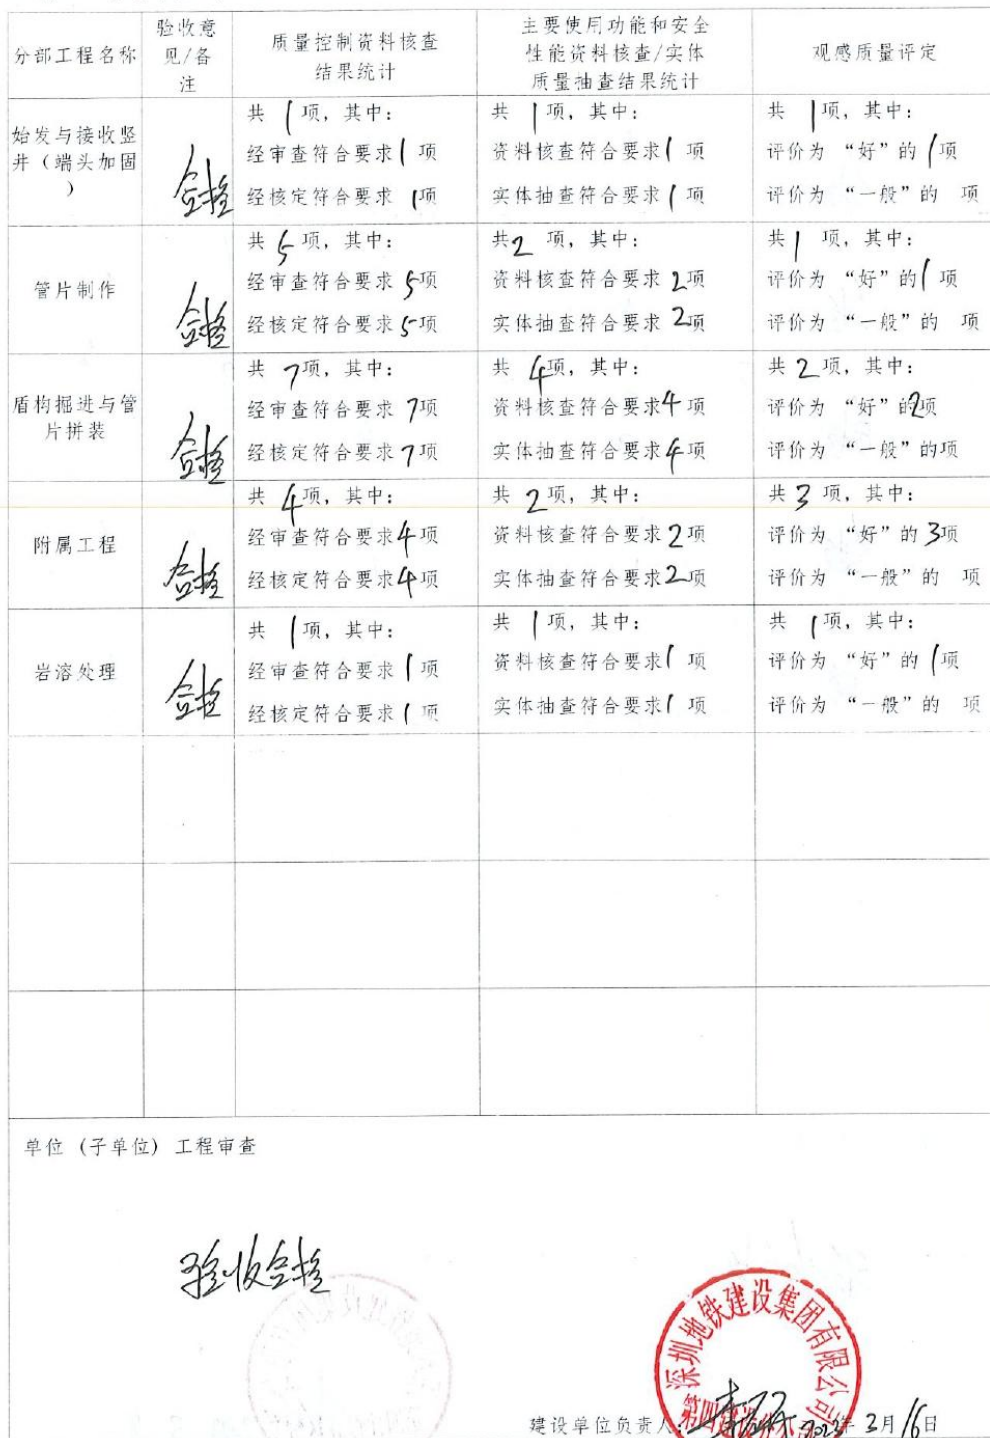 分部工程名称
验收意
见/备
注
质量控制资料核查
结果统计
主要使用功能和安全
性能资料核查/实体
质量抽查结果统计
观感质量评定
始发与接收竖
井(端头加固
)
合格
共 1项，其中：
经审查符合要求1 项
经核定符合要求 1项
共 1项，其中：
资料核查符合要求1 项
实体抽查符合要求1 项
共 1项，其中：
评价为 “好”的 1项
评价为 “一般”的 项
管片制作
合格
共 5 项，其中：
经审查符合要求 5项
经核定符合要求 5项
共2 项，其中：
资料核查符合要求 2项
实体抽查符合要求 2项
共1 项，其中：
评价为 “好”的1 项
评价为 “一般”的 项
盾构掘进与管
片拼装
合格
共 7项，其中：
经审查符合要求 7项
经核定符合要求 7项
共 4项，其中：
资料核查符合要求4 项
实体抽查符合要求4 项
共 2 项，其中：
评价为 “好”的2项
评价为 “一般”的项
附属工程
合格
共 4项，其中：
经审查符合要求4 项
经核定符合要求4 项
共 2项，其中：
资料核查符合要求2 项
实体抽查符合要求2 项
共3 项，其中：
评价为 “好”的 3项
评价为 “一般”的 项
岩溶处理
合格
共 1项，其中：
经审查符合要求1 项
经核定符合要求1 项
共 1项，其中：
资料核查符合要求1 项
实体抽查符合要求1 项
共 1项，其中：
评价为 “好”的 1项
评价为 “一般”的 项
单位 (子单位) 工程审查
验收合格
深圳地铁建设集团有限公司
建设单位负责人： 2023年 3月 16日